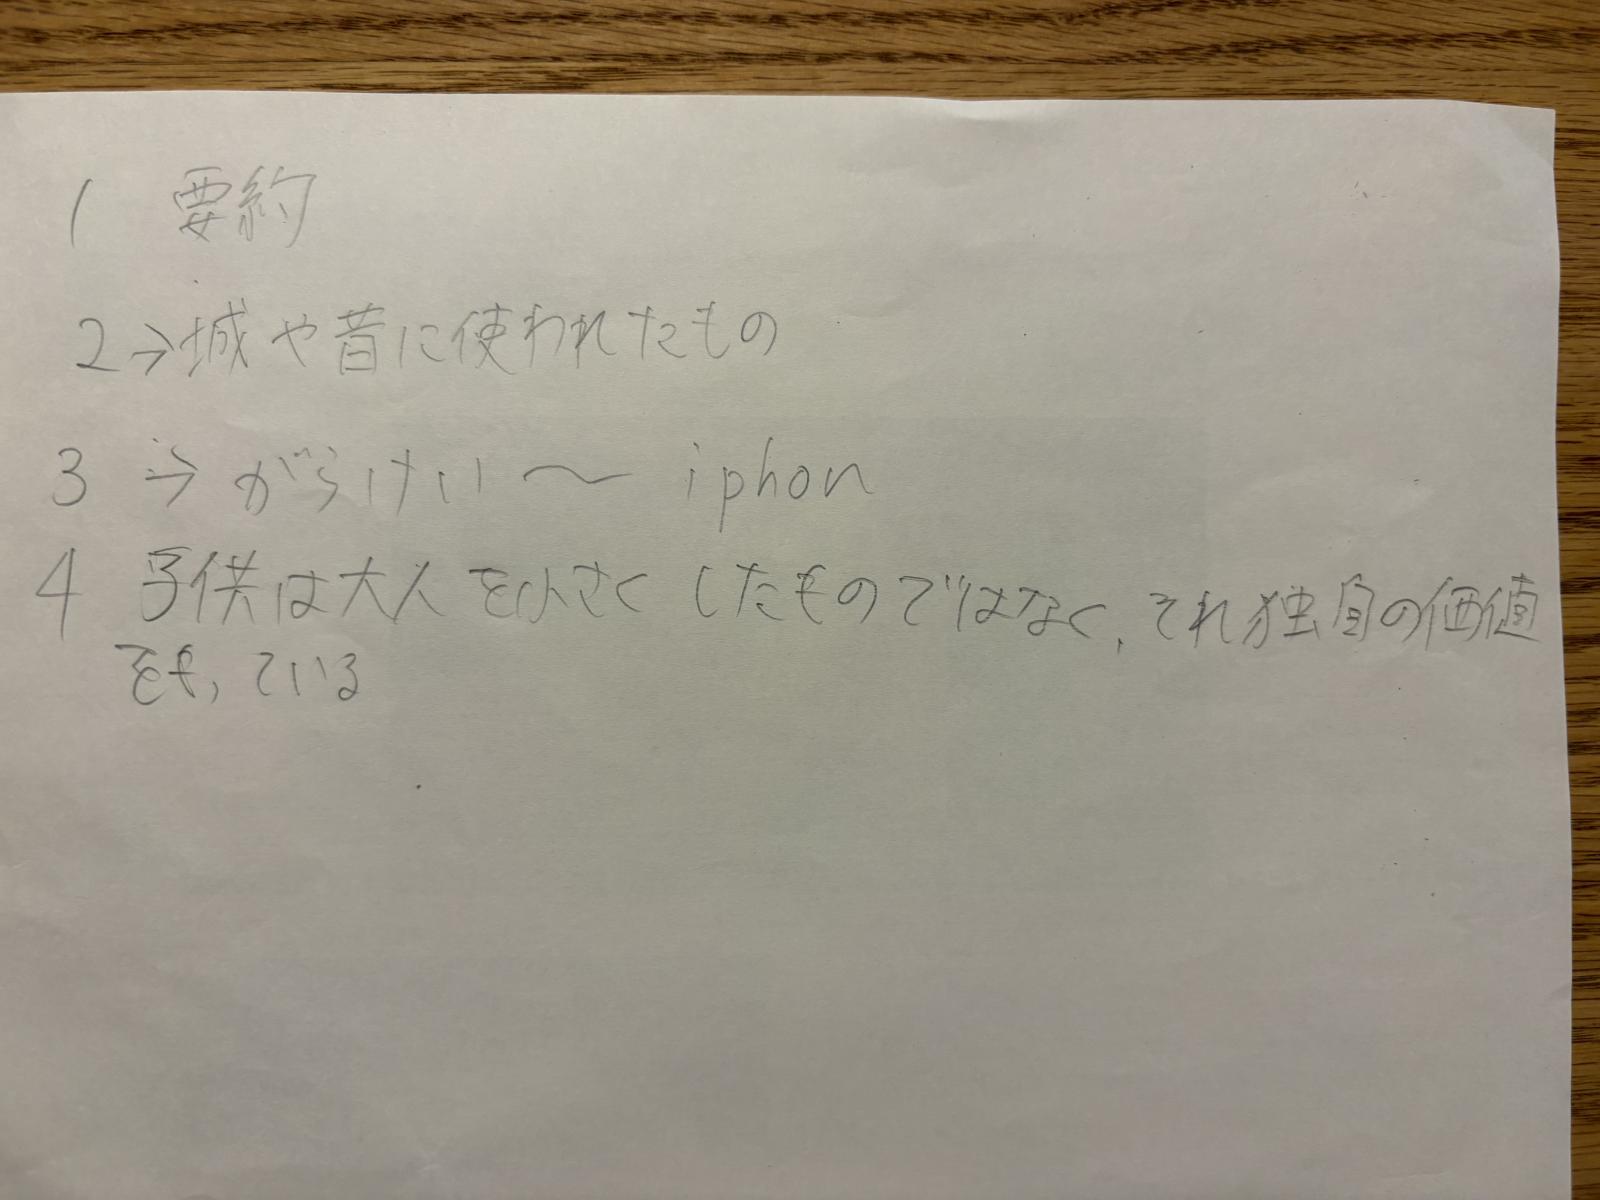 1 要約
2→城や昔に使われたもの
3 →がらけい〜 iphon
4 子供は大人を小さくしたものではなく、それ独自の価値
をもっている